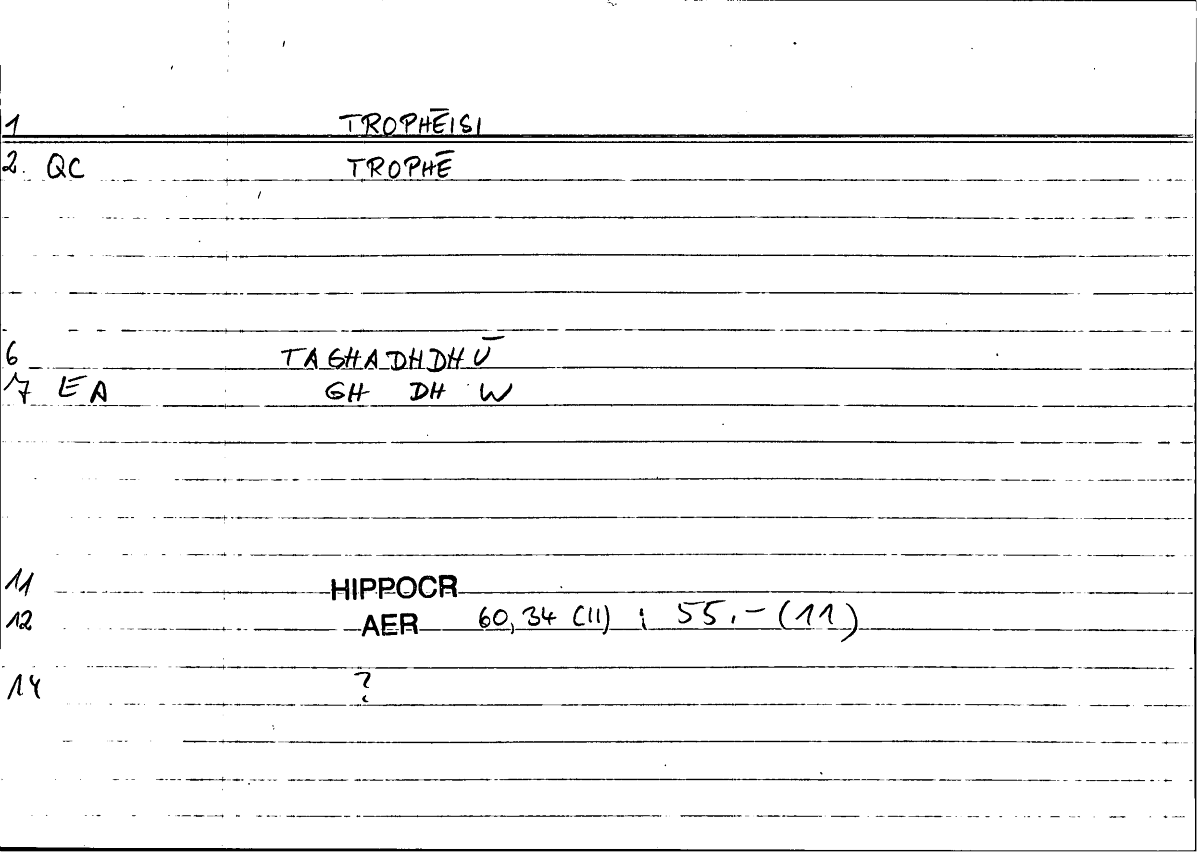 1 TROPHĒISI
2. QC TROPHĒ
6 TAGHADHDHŪ
7 EA GH DH W
11 HIPPOCR
12 AER 60,34 (11) ; 55.- (11)
14 ?